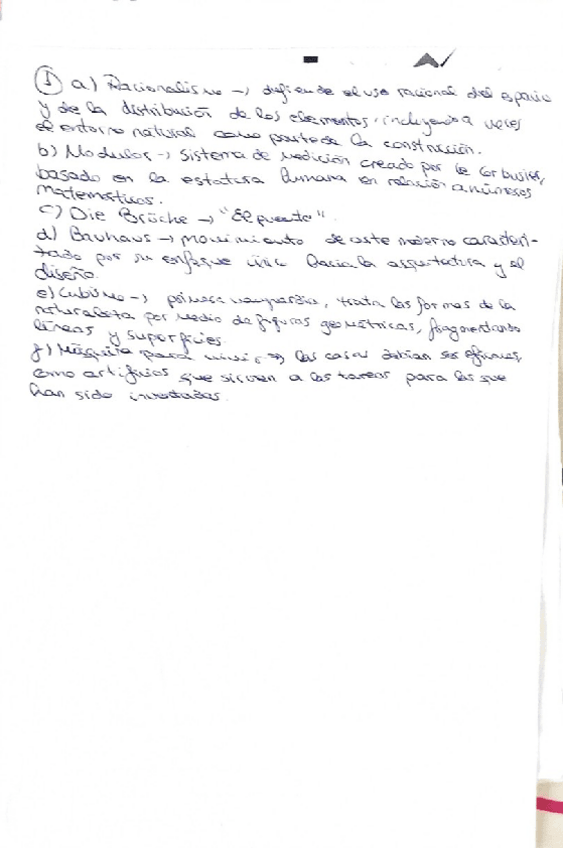 ① a) Racionalismo → defiende el uso racional del espacio
y de la distribución de los elementos, incluyendo a veces
el entorno natural como parte de la construcción.
b) Modulor → Sistema de medición creado por Le Corbusier,
basado en la estatura humana en relación a números
matemáticos.
c) Die Brücke → "El puente".
d) Bauhaus → movimiento de arte moderno caracteri-
zado por su enfoque único hacia la arquitectura y el
diseño.
e) Cubismo → primera vanguardia, trata las formas de la
naturaleza por medio de figuras geométricas, fragmentando
líneas y superficies.
f) Máquina para vivir → las casas debían ser eficaces,
como artificios que sirven a las tareas para las que
han sido inventadas.